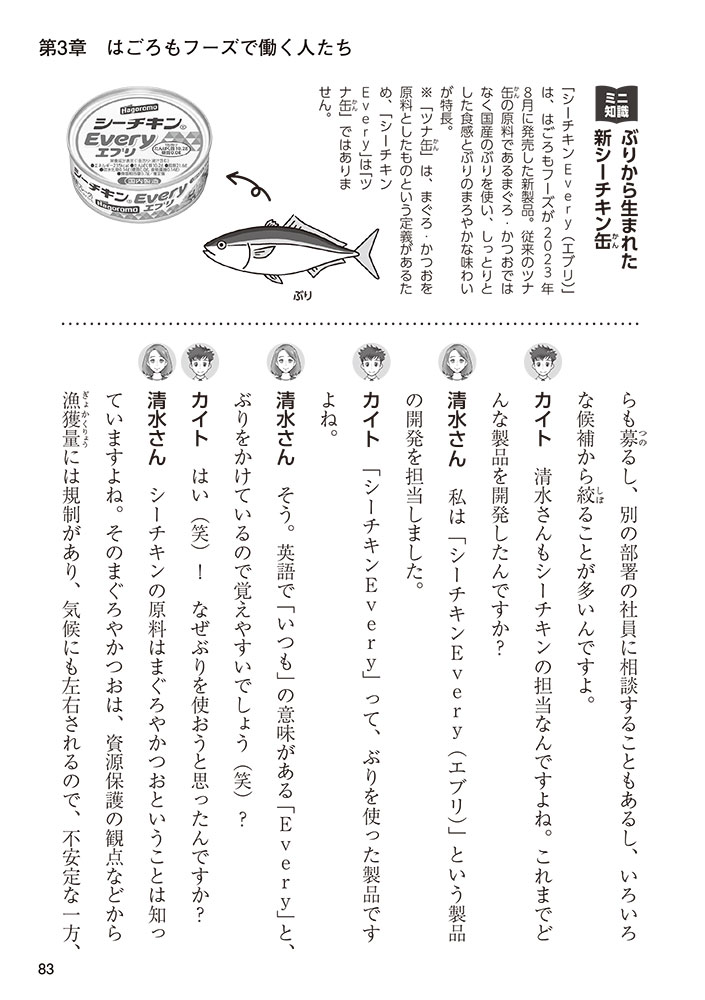 第3章 はごろもフーズで働く人たち
ミニ
知識
ぶりから生まれた
新シーチキン缶
かん
「シーチキンEvery（エブリ）」
は、はごろもフーズが2023年
8月に発売した新製品。従来のツナ
缶の原料であるまぐろ・かつおでは
かん
なく国産のぶりを使い、しっとりと
した食感とぶりのまろやかな味わい
が特長。
※「ツナ缶」は、まぐろ・かつおを
かん
原料としたものという定義があるた
め、「シーチキン
Every」は「ツ
ナ缶」ではありま
かん
せん。
Hagoromo
シーチキン®
Every
エブリ
国内製造
シーチキン
Every
エブリ
Hagoromo
ぶり
らも募るし、別の部署の社員に相談することもあるし、いろいろ
つの
な候補から絞ることが多いんですよ。
しぼ
カイト 清水さんもシーチキンの担当なんですよね。これまでど
んな製品を開発したんですか？
清水さん 私は「シーチキンEvery（エブリ）」という製品
の開発を担当しました。
カイト 「シーチキンEvery」って、ぶりを使った製品です
よね。
清水さん そう。英語で「いつも」の意味がある「Every」と、
ぶりをかけているので覚えやすいでしょう（笑）？
カイト はい（笑）！ なぜぶりを使おうと思ったんですか？
清水さん シーチキンの原料はまぐろやかつおということは知っ
ていますよね。そのまぐろやかつおは、資源保護の観点などから
漁獲量には規制があり、気候にも左右されるので、不安定な一方、
ぎょかくりょう
83